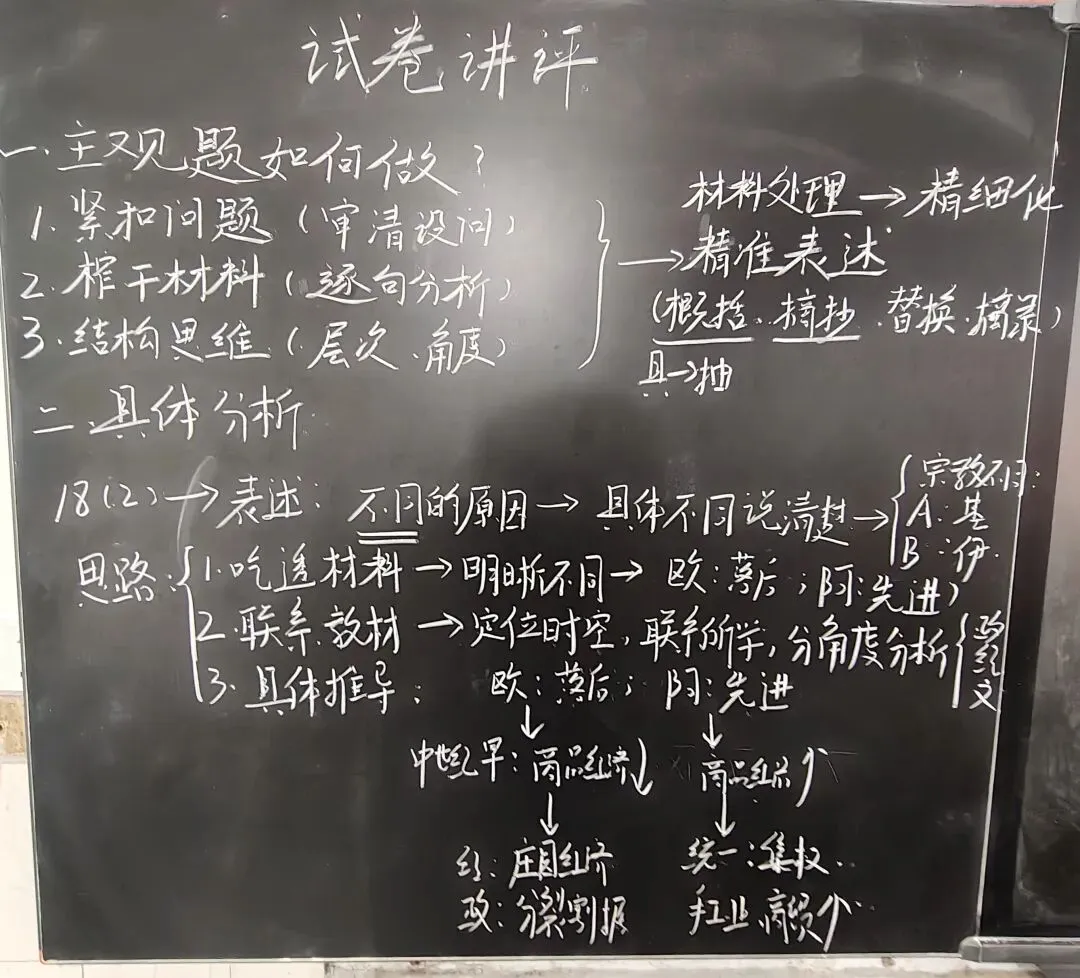 试卷讲评
一.主观题如何做?
1.紧扣问题(审清设问)
2.榨干材料(逐句分析)
3.结构思维(层次、角度)
材料处理→精细化
→精准表述
(概括、摘抄、替换、摘录)
具→抽
二、具体分析
18(2)→表述:不同的原因→具体不同说清楚→
宗教不同:
A:基
B:伊
思路:
1.吃透材料→明晰不同→欧:落后;阿:先进
2.联系教材→定位时空,联系所学,分角度分析
政
经
文
3.具体推导:欧:落后;阿:先进
↓ ↓
中世纪早:商品经济↓ 商品经济↑
↓ ↓
经:庄园经济 统一:集权..
政:分裂割据 手工业、商贸↑..